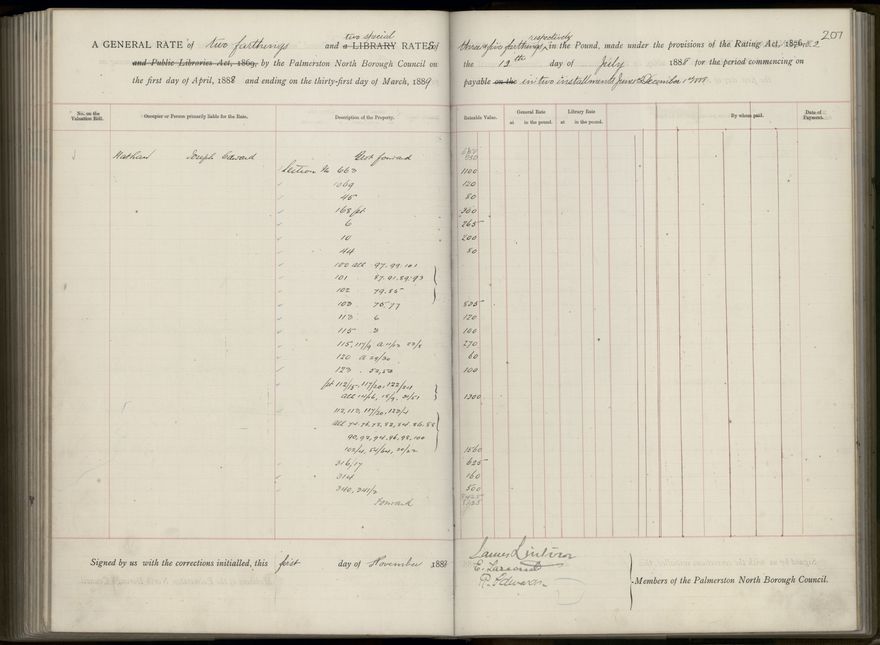 207
two special
respectively
A GENERAL RATE of two farthings and a LIBRARY RATES of three & five farthings in the Pound, made under the provisions of the Rating Act, 1876,
and Public Libraries Act, 1869, by the Palmerston North Borough Council on the 12th day of July 1888 for the period commencing on
the first day of April, 1888 and ending on the thirty-first day of March, 1889 payable on the in two instalments June & December 1st 1888.
No. on the Valuation Roll. Occupier or Person primarily liable for the Rate. Description of the Property. Rateable Value. General Rate at in the pound. Library Rate at in the pound. By whom paid. Date of Payment.
Nathan Joseph Edward Brot forward
Section No 663 1100
1069 120
45 80
168 pt 360
6 265
10 200
44 80
100 all 97.99.101
101 87.91.89.93
102 79.85
103 75.77 825
113 6 120
115 3 100
115, 117/9 270
120 A 29/30 60
123 . 52,53 100
pt 112/5, 117/20, 122/24
1300
112, 113, 117/20, 123/4
all 74.76.78.82.84.86.88
90, 92, 94, 96, 98, 100
1560
316/17 625
314 160
340, 341/2 500
Forward
Signed by us with the corrections initialled, this first day of November 1888
James Linton
E. Larcomb
R. Edwards
Members of the Palmerston North Borough Council.